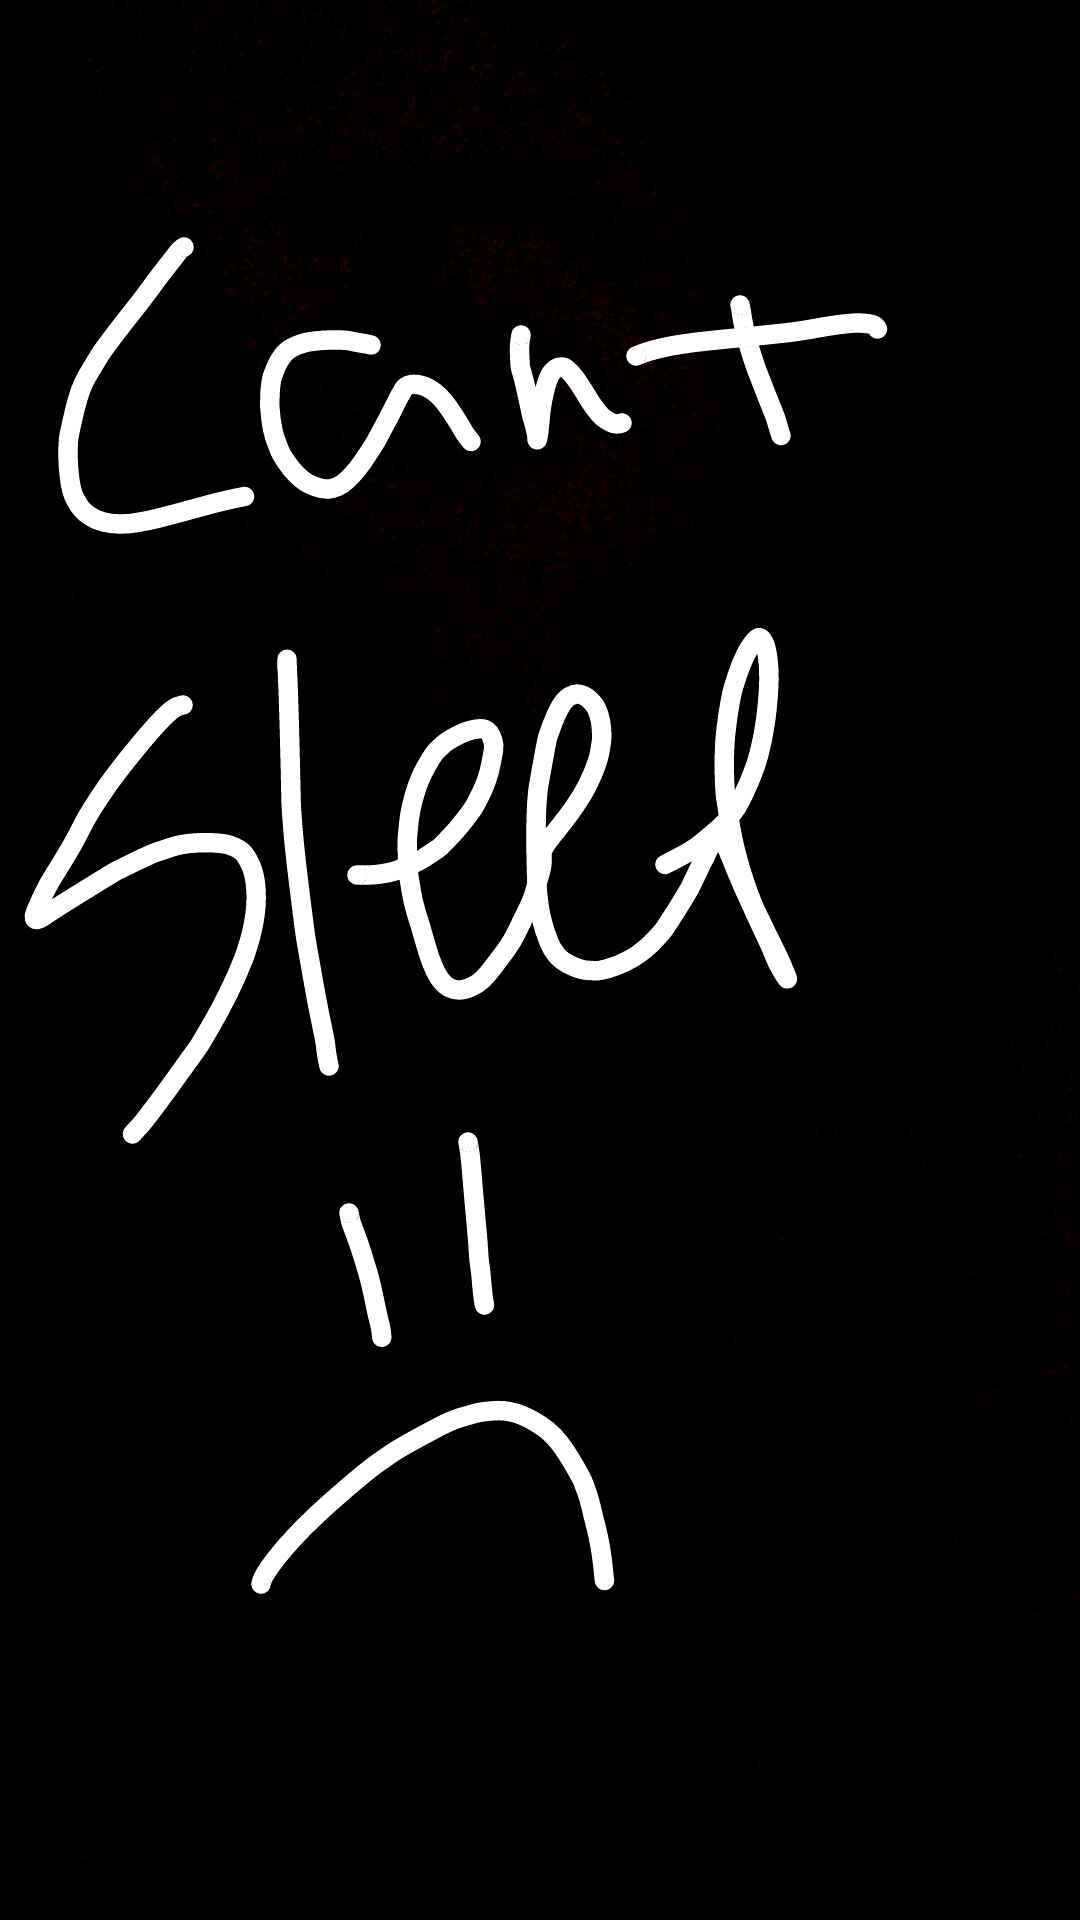 Cant
Sleep